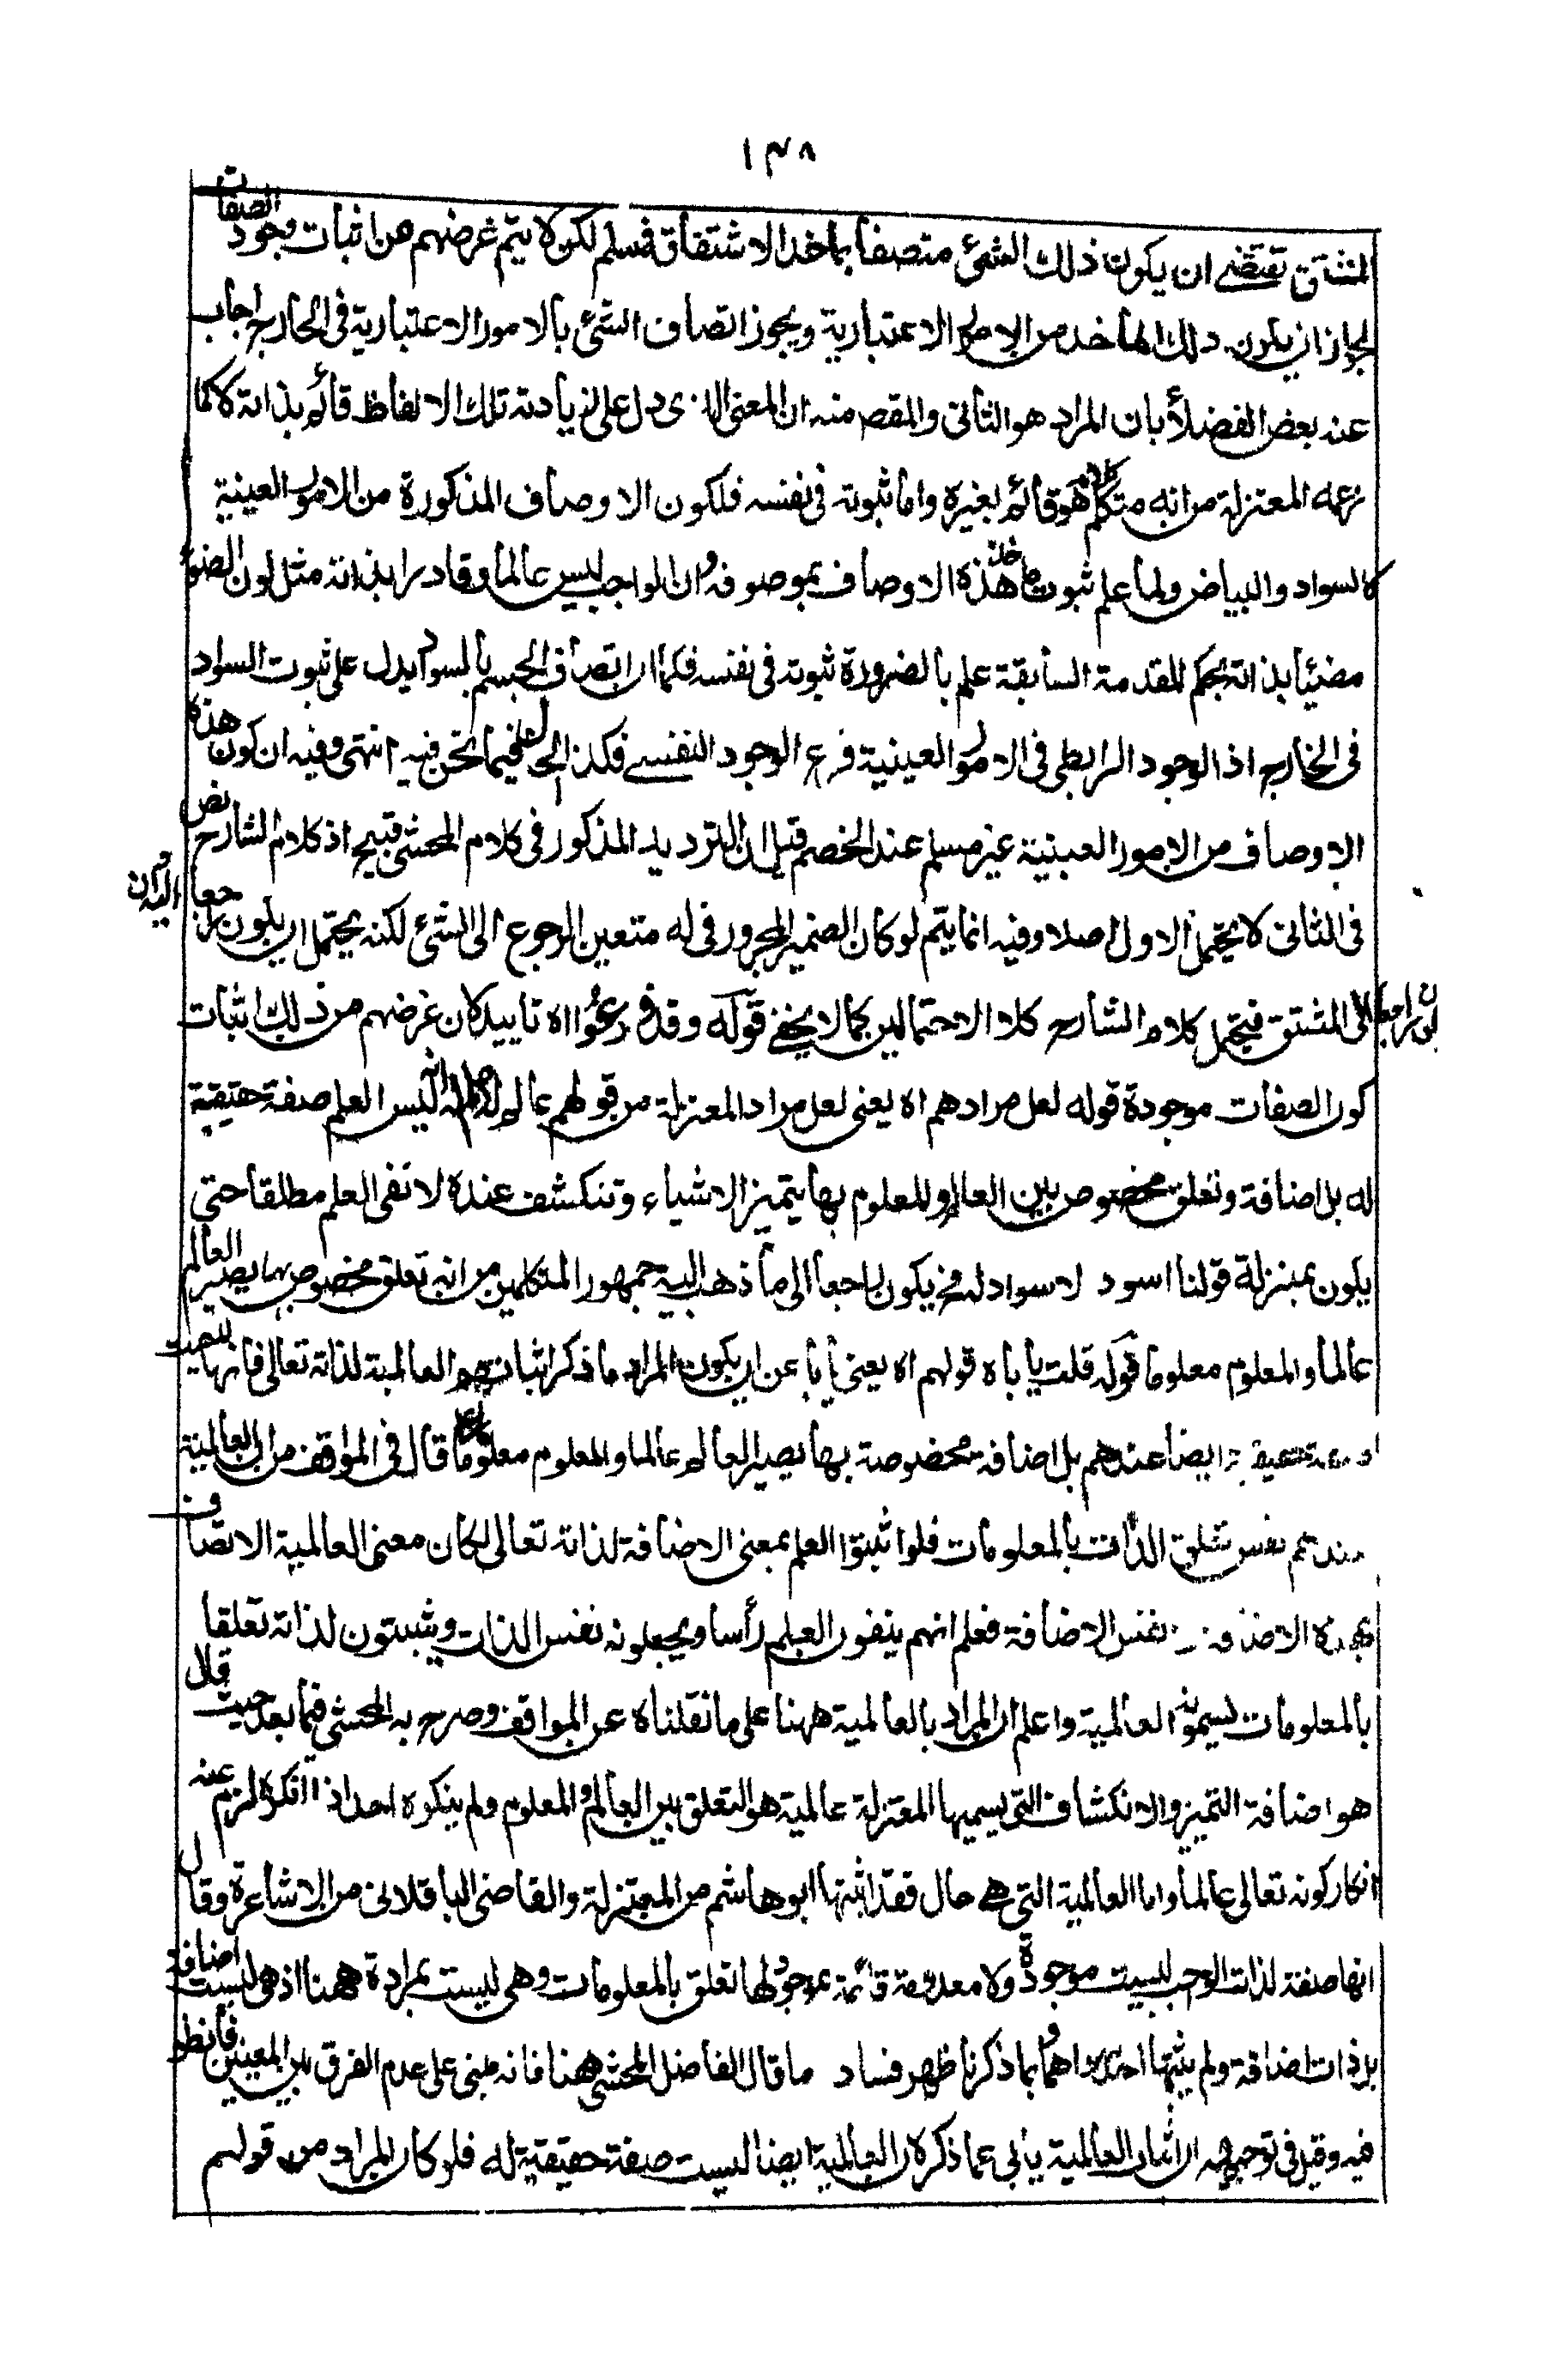 ١٣٨
المشتق تقتضي ان يكون ذلك الشئ متصفا بماخذ الاشتقاق فمسلم لكن لا يتم غرضهم من اثبات وجود الصفات
لجواز ان يكون ذلك الماخذ من الامور الاعتبارية ويجوز اتصاف الشئ بالامور الاعتبارية في الخارج اجاب
عنه بعض الفضلأ بان المراد هو الثاني والمقصـ منه ان المعنى الذى دل على زيادته تلك الالفاظ قائم بذاته لا كما
زعمه المعتزلة من انه متكلم بكلام هو قائم بغيره واما ثبوته في نفسه فلكون الاوصاف المذكورة من الامور العينية
كالسواد والبياض ولما علم ثبوت ماخذ هذه الاوصاف بموصوفه وان الواجب ليس عالما وقادرا بذاته مثل لون الضوء
مضئيا بذاته بحكم المقدمة السابقة علم بالضرورة ثبوته في نفسه فكما ان اتصاف الجسم بالسواد يدل على ثبوت السواد
في الخارج اذ الوجود الرابطي في الامور العينية فرع الوجود النفسي فكذا الحال فيما نحن فيه انتهى وفيه ان كون هذه
الاوصاف من الامور العينية غير مسلم عند الخصم قيل ان الترديد المذكور في كلام المحشي قبيح اذ كلام الشارح نص
في الثاني لا يحتمل الاول اصلا وفيه انما يتم لو كان الضمير المجرور في له متعين الرجوع الى الشئ لكنه يحتمل ان يكون راجعا
الى المشتق فيحتمل كلام الشارح كلا الاحتمالين كما لا يخفي قوله وقد فرعوا اه تاييد لان غرضهم من ذلك اثبات
كون الصفات موجودة قوله لعل مرادهم اه يعني لعل مراد المعتزلة من قولهم عالم لا علم له انه ليس العلم صفة حقيقية
له بل اضافة وتعلق مخصوص بين العالم والمعلوم بها يتميز الاشياء وتنكشف عنده لا نفي العلم مطلقا حتى
يكون بمنزلة قولنا اسود لا سواد له فح يكون راجعا الى ما ذهب اليه جمهور المتكلمين من انه تعلق مخصوص بها يصير العالم
عالما والمعلوم معلوما قوله قلت يأباه قولهم اه يعني يأبا عن ان يكون المراد ما ذكر اثباتهم العالمية لذاته تعالى فانها ليست
ايضا عندهم بل اضافة مخصوصة بها يصير العالم عالما والمعلوم معلوما قال في المواقف من ان العالمية
عندهم نفس تعلق الذات بالمعلومات فلو اثبتوا العلم بمعنى الاضافة لذاته تعالى لكان معنى العالمية الاتصاف
بهذه الاضافة لا نفس الاضافة فعلم انهم ينفون العلم رأسا ويجعلونه نفس الذات ويثبتون لذاته تعلقا
بالمعلومات يسمونه العالمية واعلم ان المراد بالعالمية ههنا على ما نقلناه عن المواقف وصرح به المحشي فيما بعد حيث قال
هو اضافة التميز والانكشاف التي يسميها المعتزلة عالمية هو التعلق بين العالم والمعلوم ولم ينكره احد اذ انكاره لزم عنه
انكار كونه تعالى عالما واما العالمية التي هي حال فقد اثبتها ابو هاشم من المعتزلة والقاضي الباقلاني من الاشاعرة وقال
انها صفة لذات الوجب ليست موجودة ولا معدومة قائمة بموجود لها تعلق بالمعلومات وهي ليست بمرادة ههنا اذ هي ليست اضافة
بل ذات اضافة ولم يثبتها احد سواهما وبما ذكرنا ظهر فساد ما قال الفاضل المحشي ههنا فانه مبني على عدم الفرق بين المعنيين فانظر
فيه وقيل في توجيهه ان اثبات العالمية يأبى عما ذكره لان العالمية ايضا ليست صفة حقيقية له فلو كان المراد من قولهم